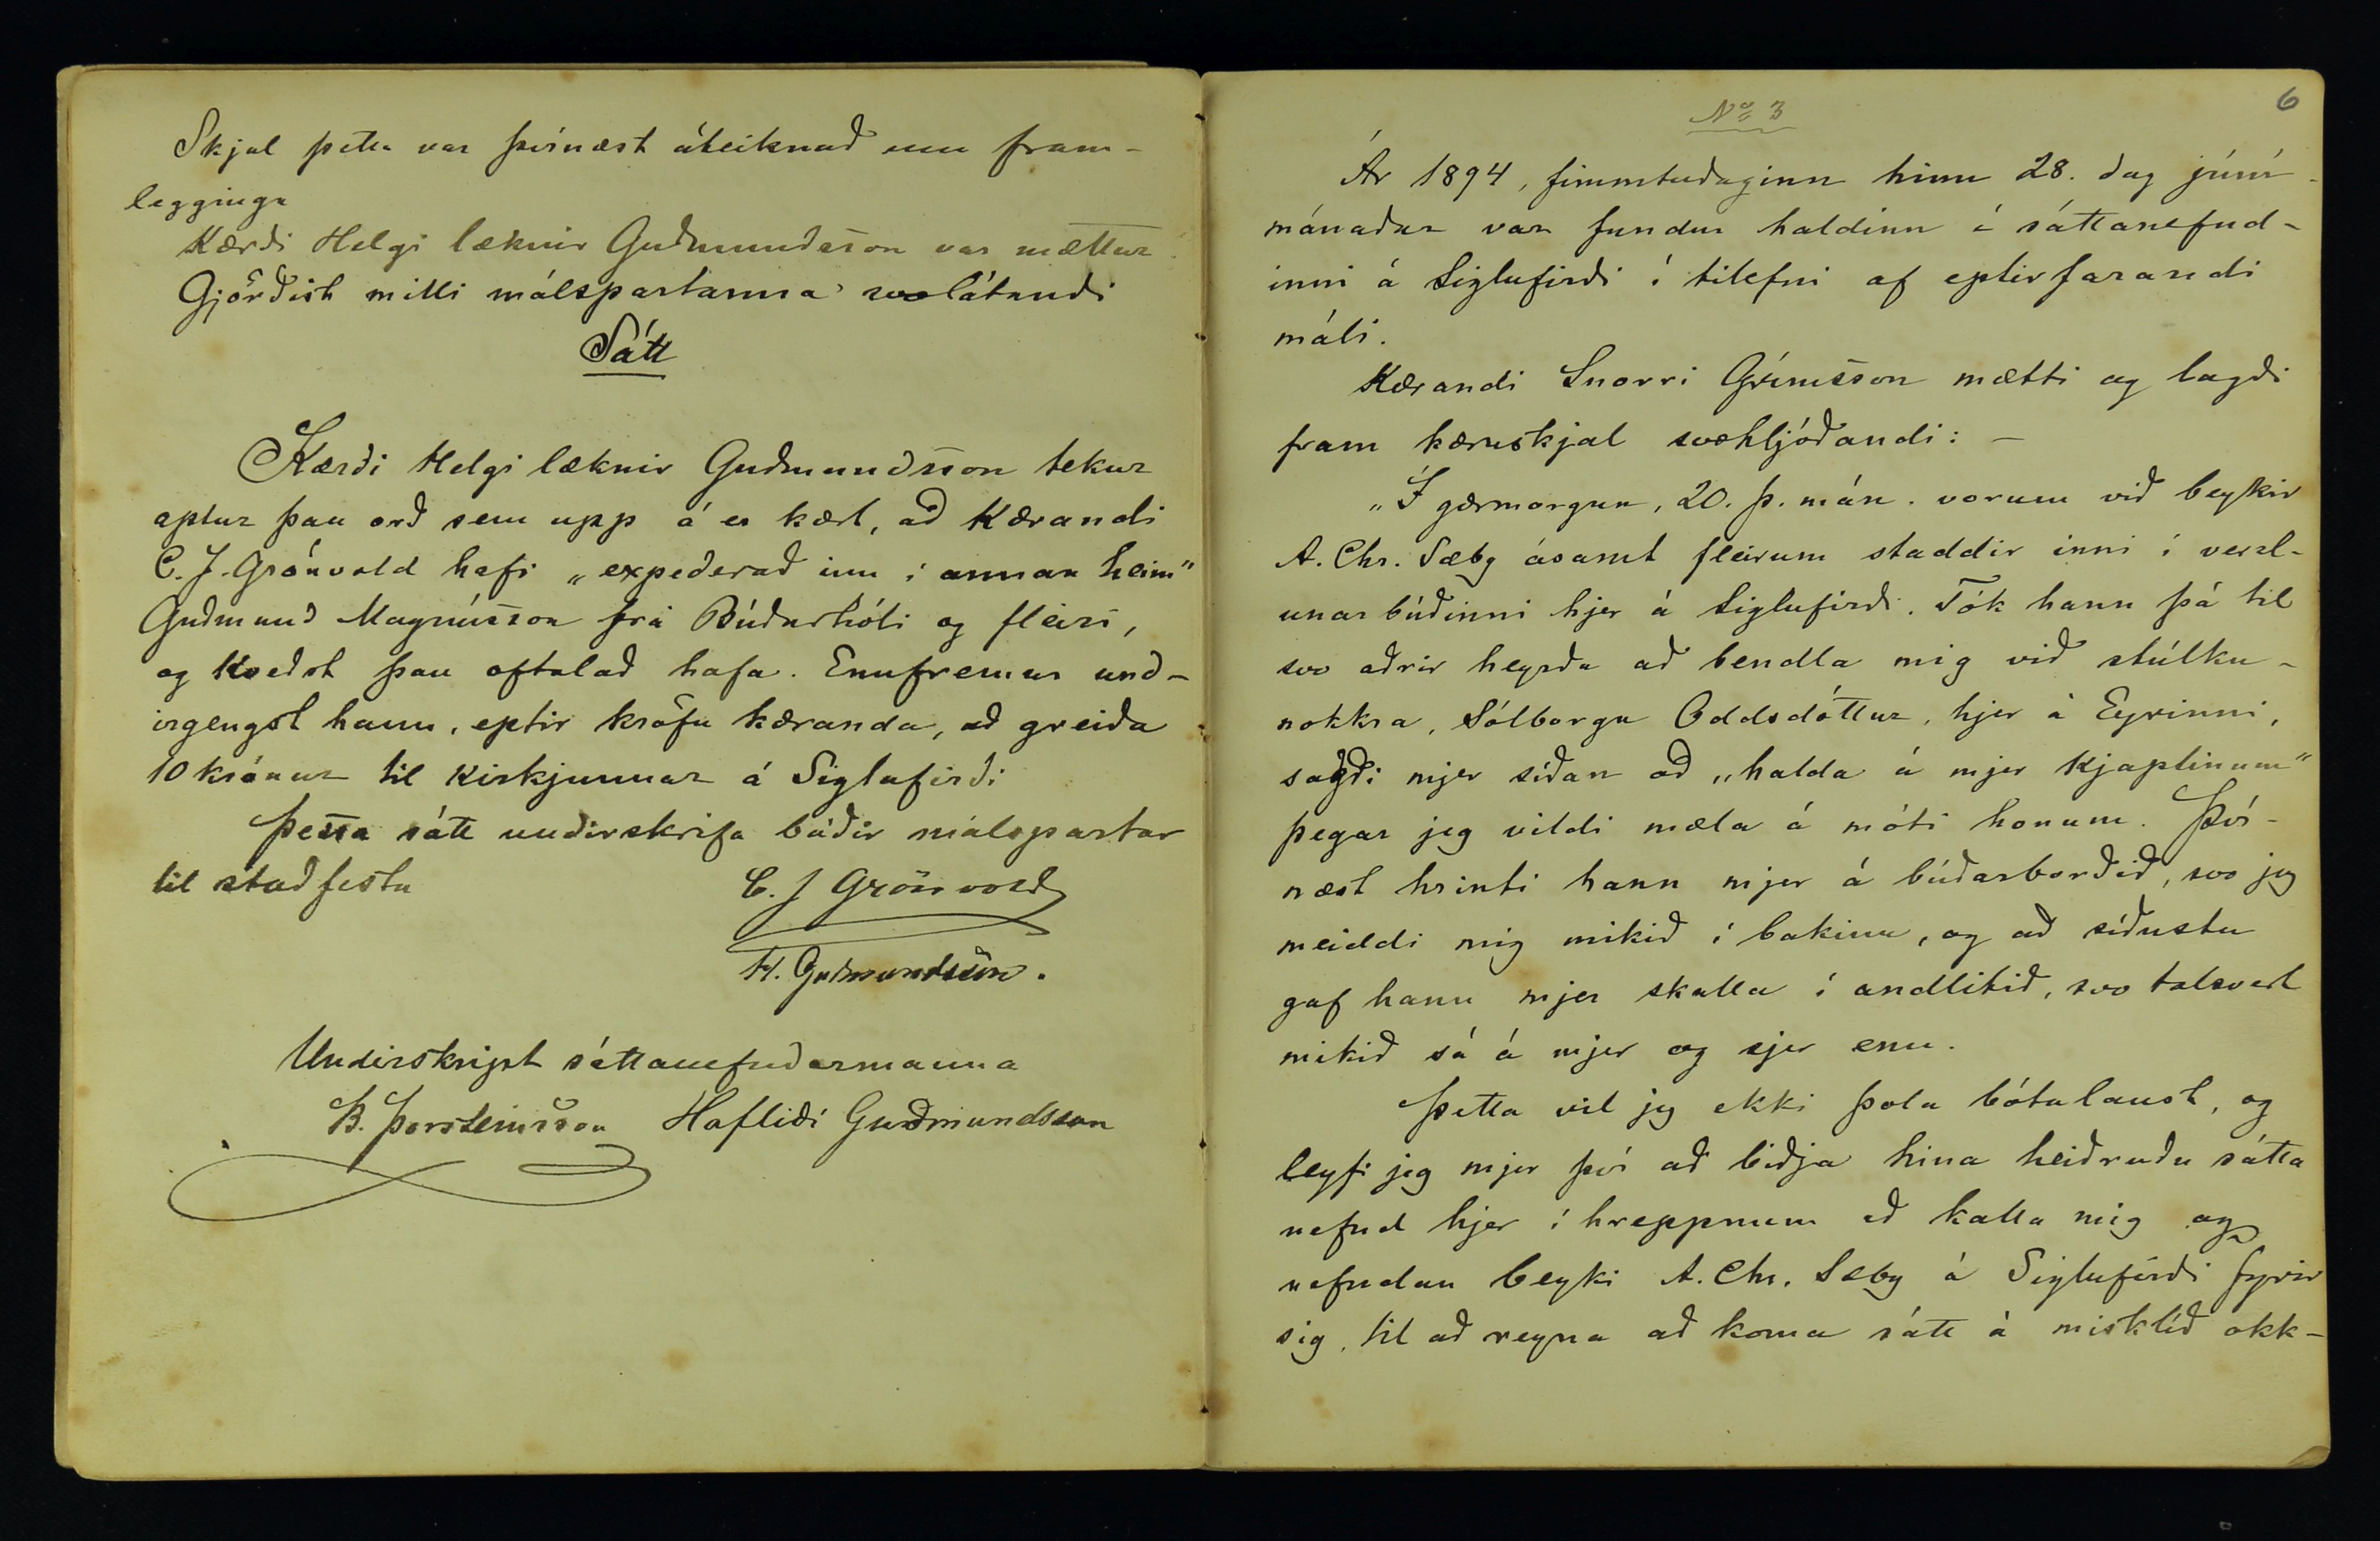 Skjal þetta var þvínæst áteiknað um fram-
leggingu
Kærði Helgi læknir Guðmundsson var mættur.
Gjörðist milli málspartanna svolátandi
Sátt
Kærði Helgi læknir Guðmundsson tekur
aptur þau orð sem upp á er kært, að Kærandi
C. J. Grönvold hafi „expederað inn í annan heim"
Guðmund Magnússon frá Búðarhóli og fleiri,
og kveðst þau oftalað hafa. Ennfremur und-
irgengst hann, eptir kröfu kæranda, að greiða
10 krónur til Kirkjunnar á Siglufirði
Þessa sátt undirskrifa báðir málspartar
til staðfestu
C. J Grönvold
H. Guðmundsson.
Undirskript sáttanefndarmanna
B. Þorsteinsson Hafliði Guðmundsson
6
No 3
Ár 1894, fimmtudaginn hinn 28. dag júní-
mánaðar var fundur haldinn í sáttanefnd-
inni á Siglufirði í tilefni af eptirfarandi
máli.
Kærandi Snorri Grímsson mætti og lagði
fram kæruskjal svohljóðandi: -
„Í gærmorgun, 20. þ. mán. vorum við beykir
A. Chr. Sæby ásamt fleirum staddir inni í verzl-
unarbúðinni hjer á Siglufirði. Tók hann þá til
svo aðrir heyrðu að bendla mig við stúlku-
nokkra, Sólborgu Oddsdóttur, hjer á Eyrinni,
sagði mjer síðan að „halda á mjer Kjaptinum"
þegar jeg vildi mæla á móti honum. Því-
næst hrinti hann mjer á búðarborðið, svo jeg
meiddi mig mikið í bakinu, og að síðustu
gaf hann mjer skalla í andlitið, svo talsvert
mikið sá á mjer og sjer enn.
Þetta vil jeg ekki þola bótalaust, og
leyfi jeg mjer því að biðja hina heiðruðu sátta
nefnd hjer í hreppnum að kalla mig og
nefndan beyki A. Chr. Sæby á Siglufirði fyrir
sig, til að reyna að koma sátt á misklíð okk-